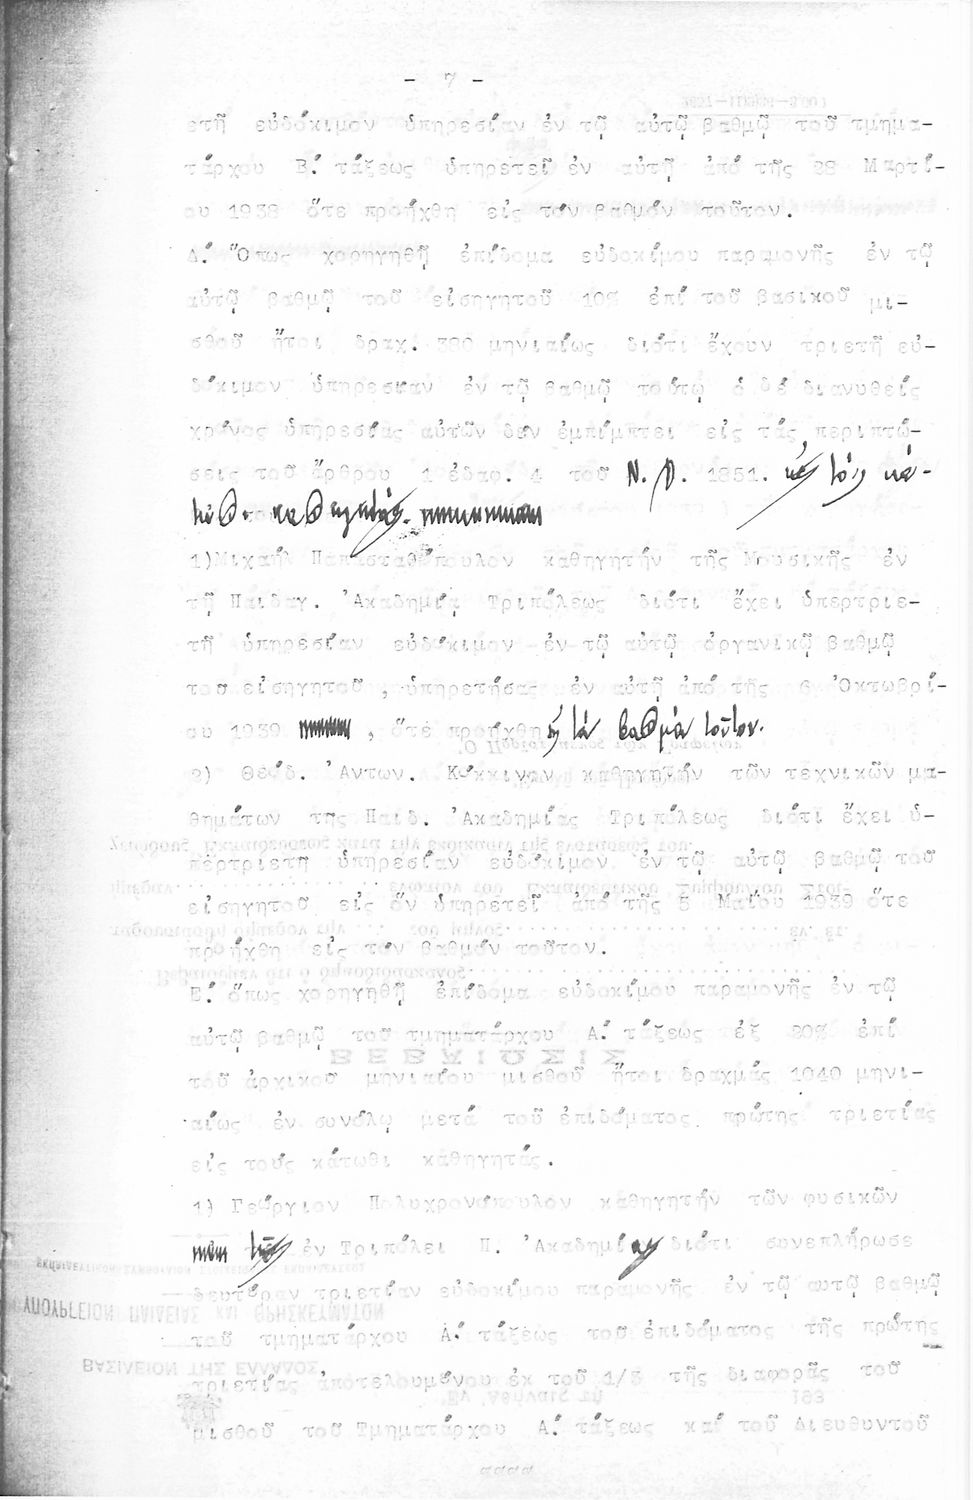 - 7 -
ετῆ εὐδόκιμον ὑπηρεσίαν ἐν τῷ αὐτῷ βαθμῷ τοῦ τμημα-
τάρχου Β.΄ τάξεως ὑπηρετεῖ ἐν αὐτῇ ἀπό τῆς 28 Μαρτί-
ου 1938 ὅτε προήχθη εἰς τόν βαθμόν τοῦτον.
Δ.΄ Ὅπως χορηγηθῇ ἐπίδομα εὐδοκίμου παραμονῆς ἐν τῷ
αὐτῷ βαθμῷ τοῦ εἰσηγητοῦ 10% ἐπί τοῦ βασικοῦ μι-
σθοῦ ἤτοι δραχ. 380 μηνιαίως διότι ἔχουν τριετῆ εὐ-
δόκιμον ὑπηρεσίαν ἐν τῷ βαθμῷ τούτῳ ὁ δέ διανυθείς
χρόνος ὑπηρεσίας αὐτῶν δέν ἐμπίμπτει εἰς τάς περιπτώ-
σεις τοῦ ἄρθρου 1 ἐδαφ. 4 τοῦ Ν.Δ. 1851. εἰς τούς κά-
τωθι καθηγητάς.
1)Μιχαήλ Παπασταθόπουλον καθηγητήν τῆς Μουσικῆς ἐν
τῇ Παιδαγ. Ἀκαδημίᾳ Τριπόλεως διότι ἔχει ὑπερτριε-
τῆ ὑπηρεσίαν εὐδόκιμον ἐν τῷ αὐτῷ ὀργανικῷ βαθμῷ
τοῦ εἰσηγητοῦ , ὑπηρετήσας ἐν αὐτῇ ἀπό τῆς 6 Ὀκτωβρί-
ου 1939 , ὅτε προήχθη εἰς τόν βαθμόν τοῦτον.
2) Θεόδ. Ἀντων. Κόκκινον καθηγητήν τῶν τεχνικῶν μα-
θημάτων τῆς Παιδ. Ἀκαδημίας Τριπόλεως διότι ἔχει ὑ-
περτριετῆ ὑπηρεσίαν εὐδόκιμον ἐν τῷ αὐτῷ βαθμῷ τοῦ
εἰσηγητοῦ εἰς ὅν ὑπηρετεῖ ἀπό τῆς 5 Μαΐου 1939 ὅτε
προήχθη εἰς τόν βαθμόν τοῦτον.
Ε.΄ ὅπως χορηγηθῇ ἐπίδομα εὐδοκίμου παραμονῆς ἐν τῷ
αὐτῷ βαθμῷ τοῦ τμηματάρχου Α.΄ τάξεως ἐξ 20% ἐπί
τοῦ ἀρχικοῦ μηνιαίου μισθοῦ ἤτοι δραχμάς 1040 μηνι-
αίως ἐν συνόλῳ μετά τοῦ ἐπιδόματος πρώτης τριετίας
εἰς τούς κάτωθι καθηγητάς.
1) Γεώργιον Πολυχρονόπουλον καθηγητήν τῶν φυσικῶν
τῆς ἐν Τριπόλει Π. Ἀκαδημίας διότι συνεπλήρωσε
δευτέραν τριετίαν εὐδοκίμου παραμονῆς ἐν τῷ αὐτῷ βαθμῷ
τοῦ τμηματάρχου Α.΄ τάξεως τοῦ ἐπιδόματος τῆς πρώτης
τριετίας ἀποτελουμένου ἐκ τοῦ 1/3 τῆς διαφορᾶς τοῦ
μισθοῦ τοῦ Τμηματάρχου Α.΄ τάξεως καί τοῦ Διευθυντοῦ